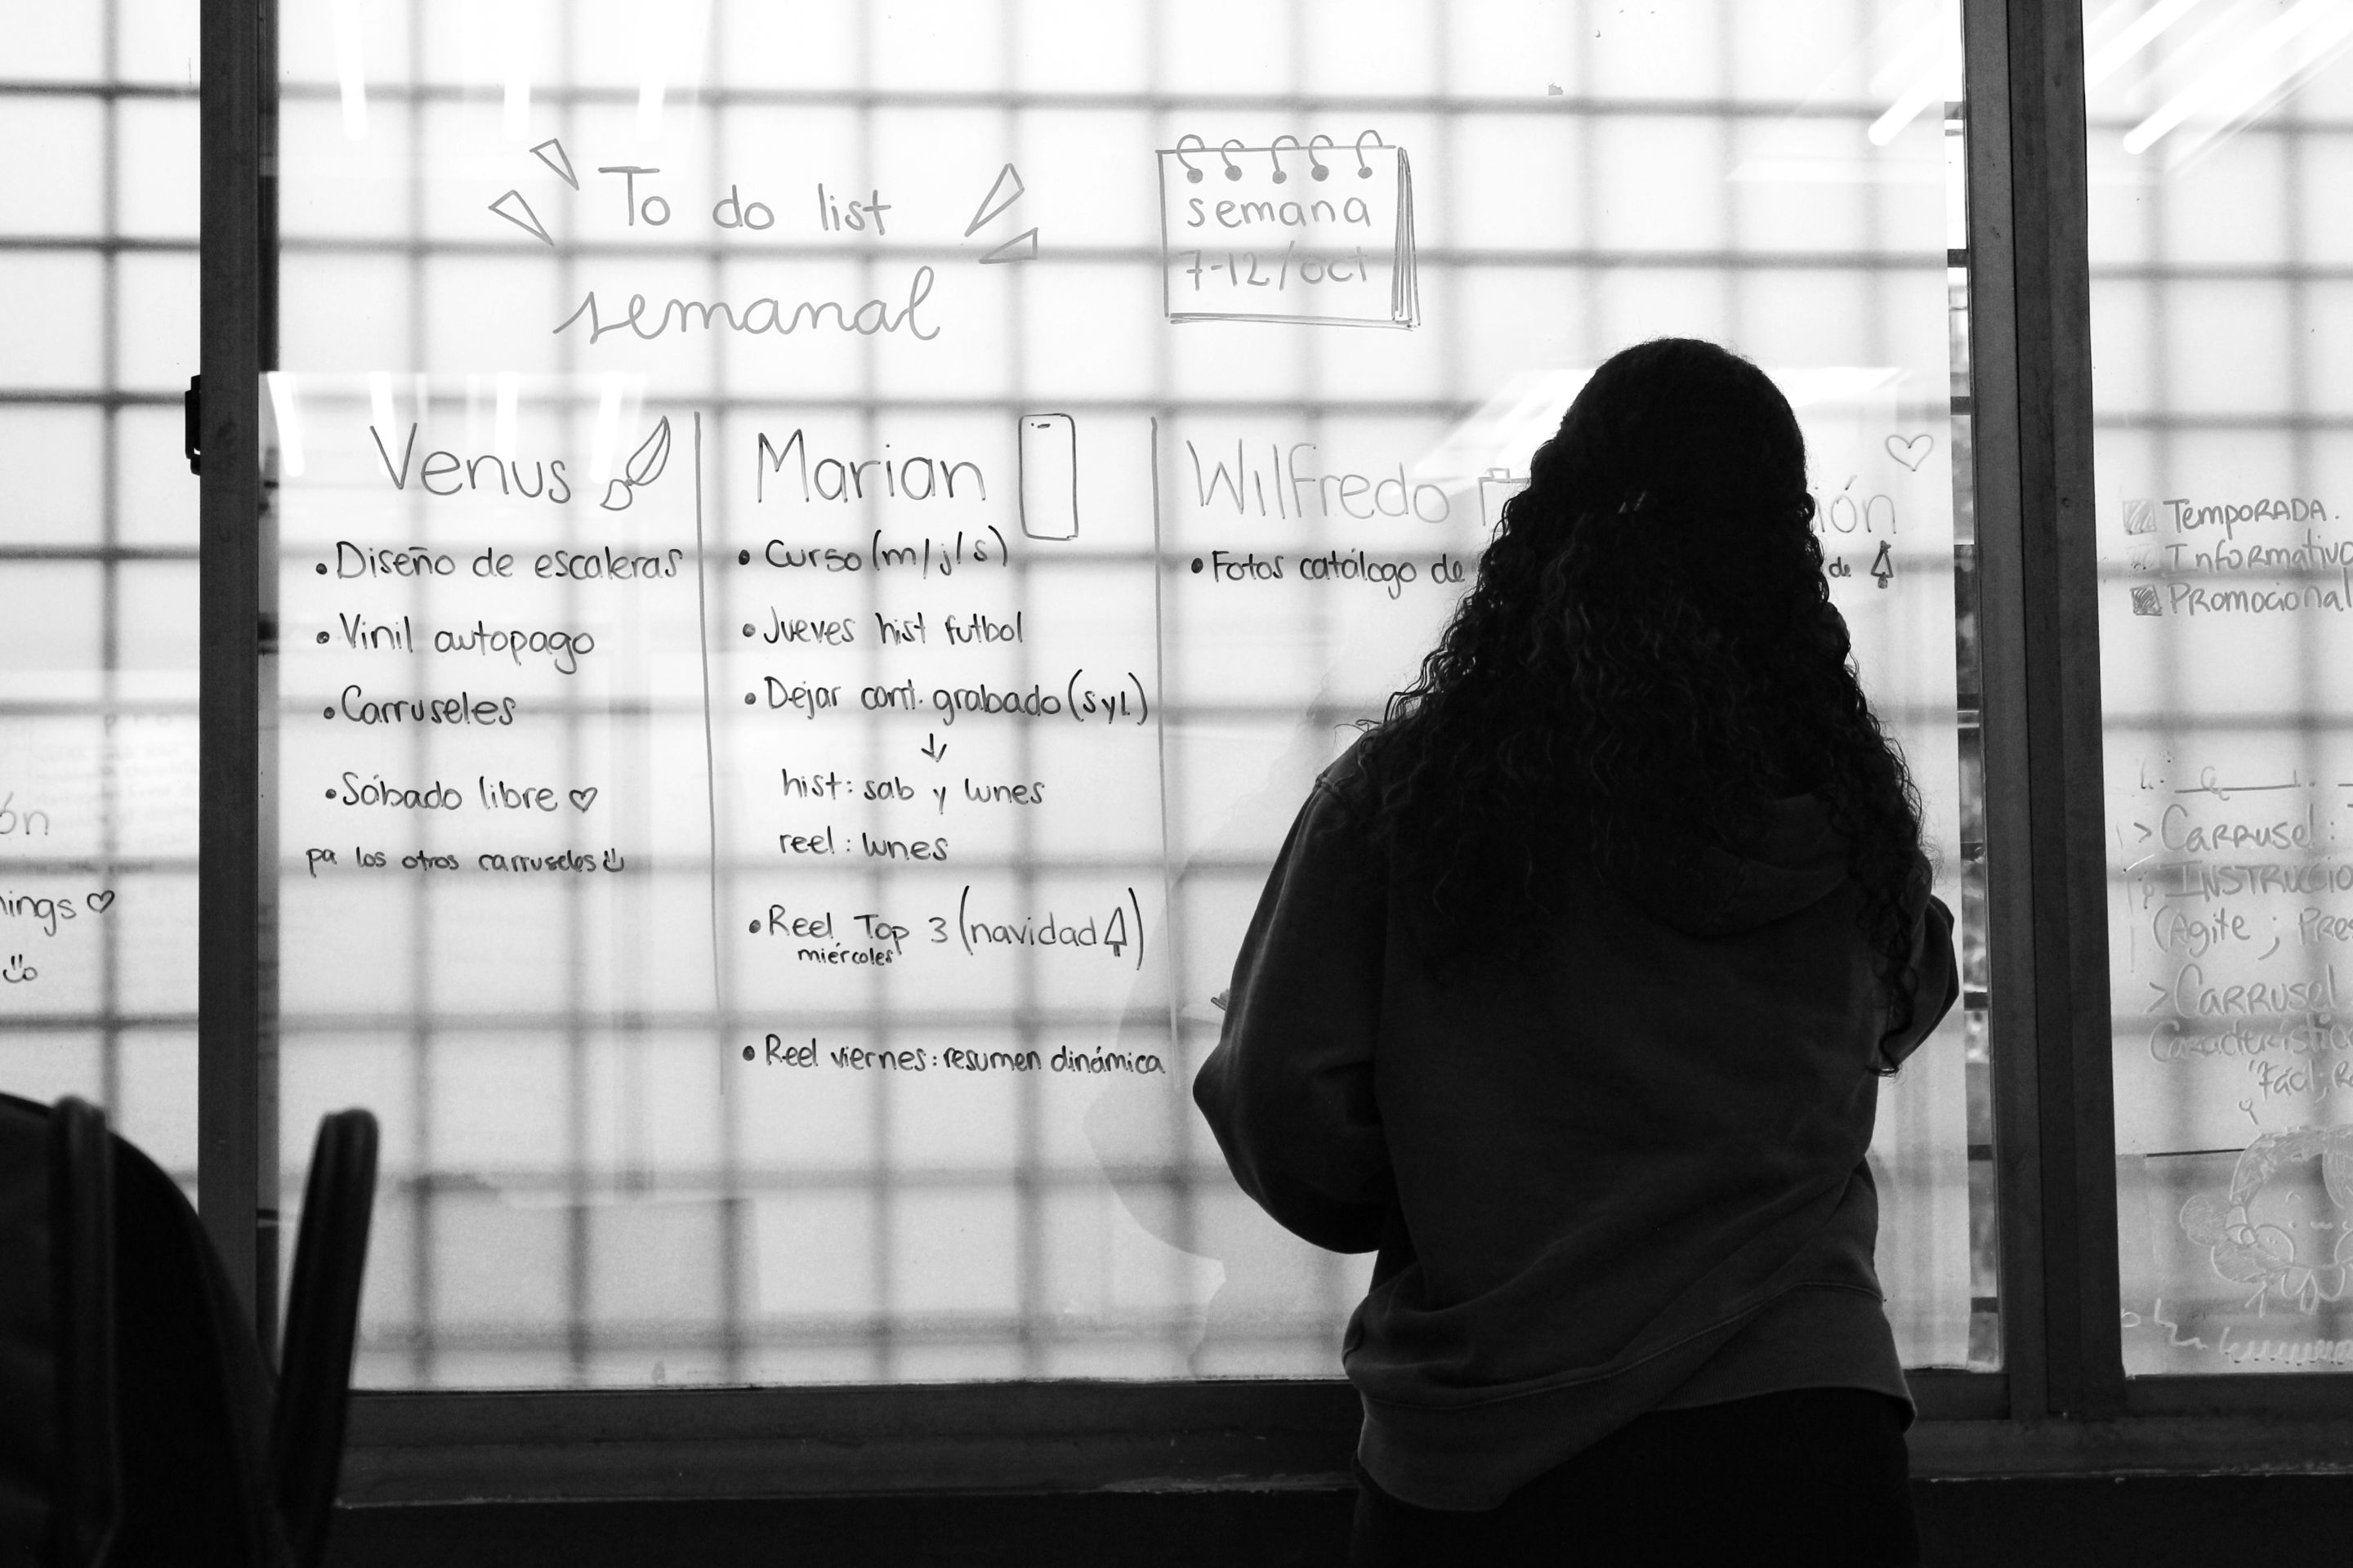 To do list
semanal
semana
7-12/oct
Venus
• Diseño de escaleras
• Vinil autopago
• Carruseles
• Sábado libre ♡
pa los otros carruseles
Marian
• Curso (m/j/s)
• Jueves hist futbol
• Dejar cont. grabado (s y L)
↓
hist: sab y lunes
reel: lunes
• Reel Top 3 (navidad)
miércoles
• Reel viernes: resumen dinámica
Wilfredo
• Fotos catálogo de
ión ♡
de
ón
ings ♡
TEMPORADA.
Informativo
PROMOCIONAL
> CARRUSEL:
INSTRUCCIO
(Agite ; PRES
> CARRUSEL
Característic
Fácil; R